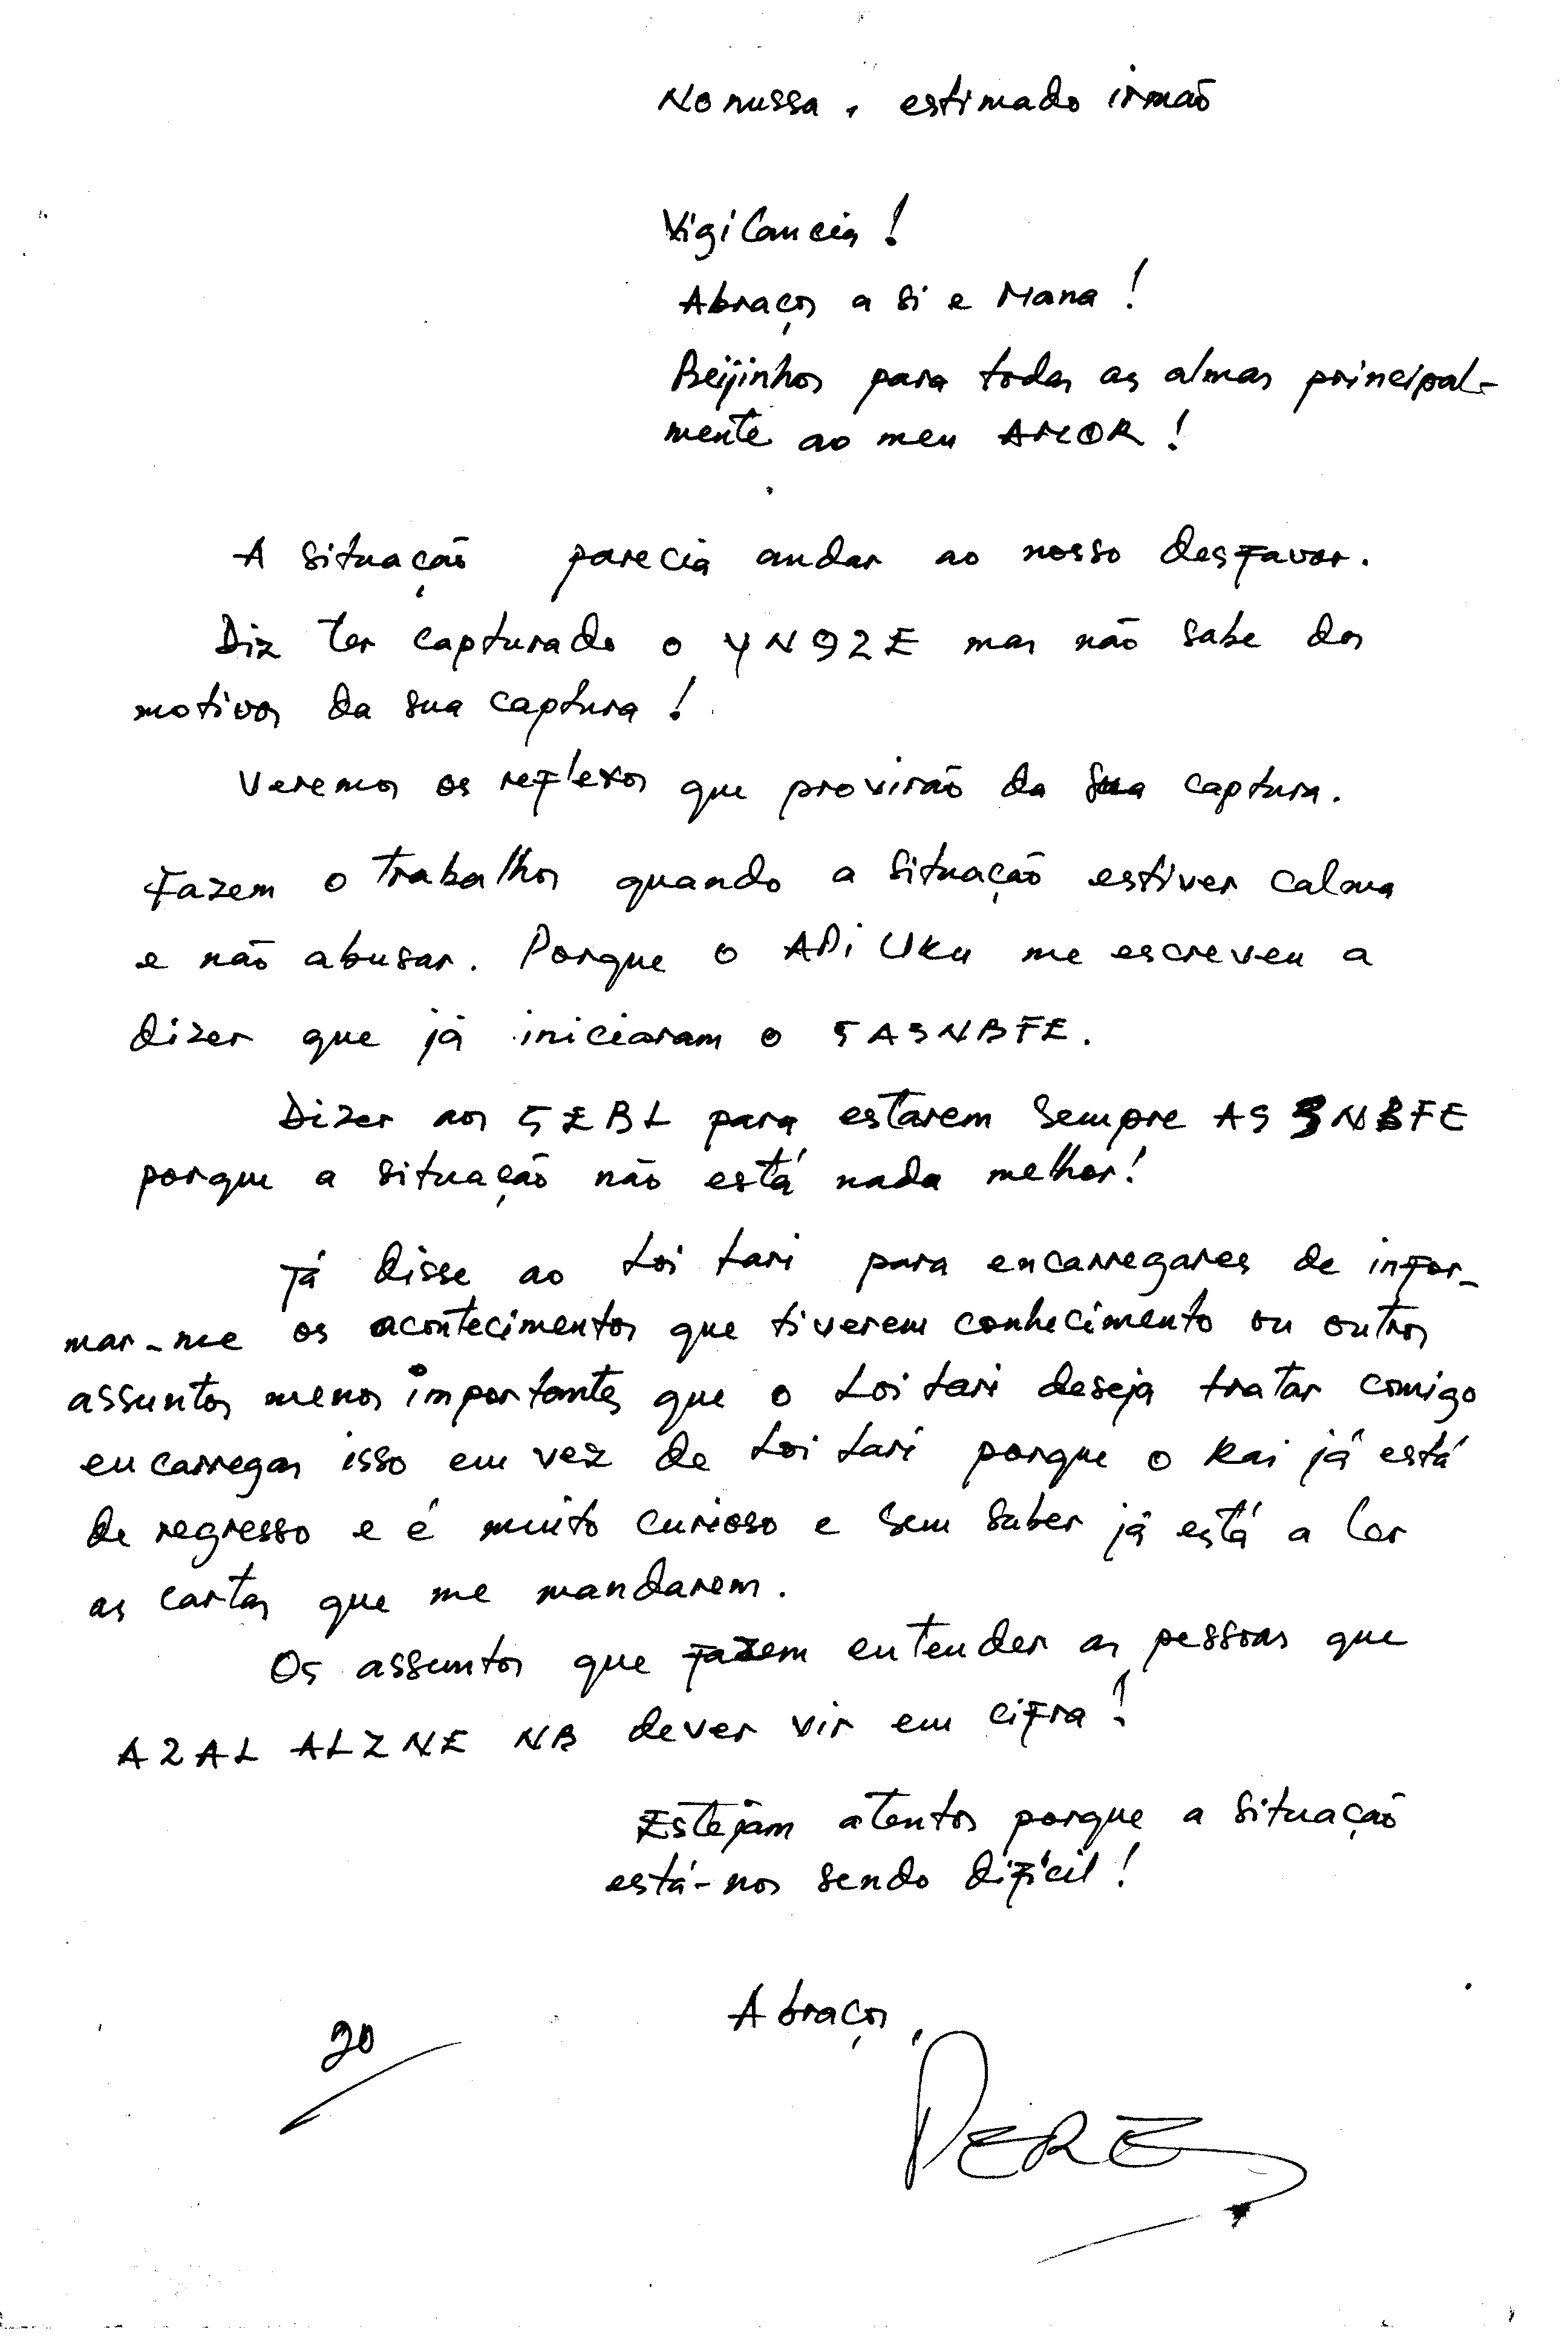 Nonussa, estimado irmão
Vigilancia!
Abraços a si e Mana!
Beijinhos para todas as almas principal-
mente ao meu AMOR!
A situação parecia andar ao nosso desfavor.
Diz ter capturado o YN92E mas não sabe dos
motivos da sua captura!
Veremos os reflexos que provirão da sua captura.
Fazem o trabalhos quando a situação estiver calma
e não abusar. Porque o ADi UKu me escreveu a
dizer que já iniciaram o 5A3NBFE.
Dizer aos 5EBL para estarem sempre A53NBFE
porque a situação não está nada melhor!
Já disse ao Loi Lari para encarregares de infor-
mar-me os acontecimentos que tiverem conhecimento ou outros
assuntos menos importantes que o Loi Lari deseja tratar comigo
encarregas isso em vez de Loi Lari porque o Kai já está
de regresso e é muito curioso e sem saber já está a ler
as cartas que me mandarem.
Os assuntos que fazem entender as pessoas que
A2AL ALZNE NB dever vir em cifra!
Estejam atentos porque a situação
está-nos sendo difícil!
Abraços,
20
PEREZ